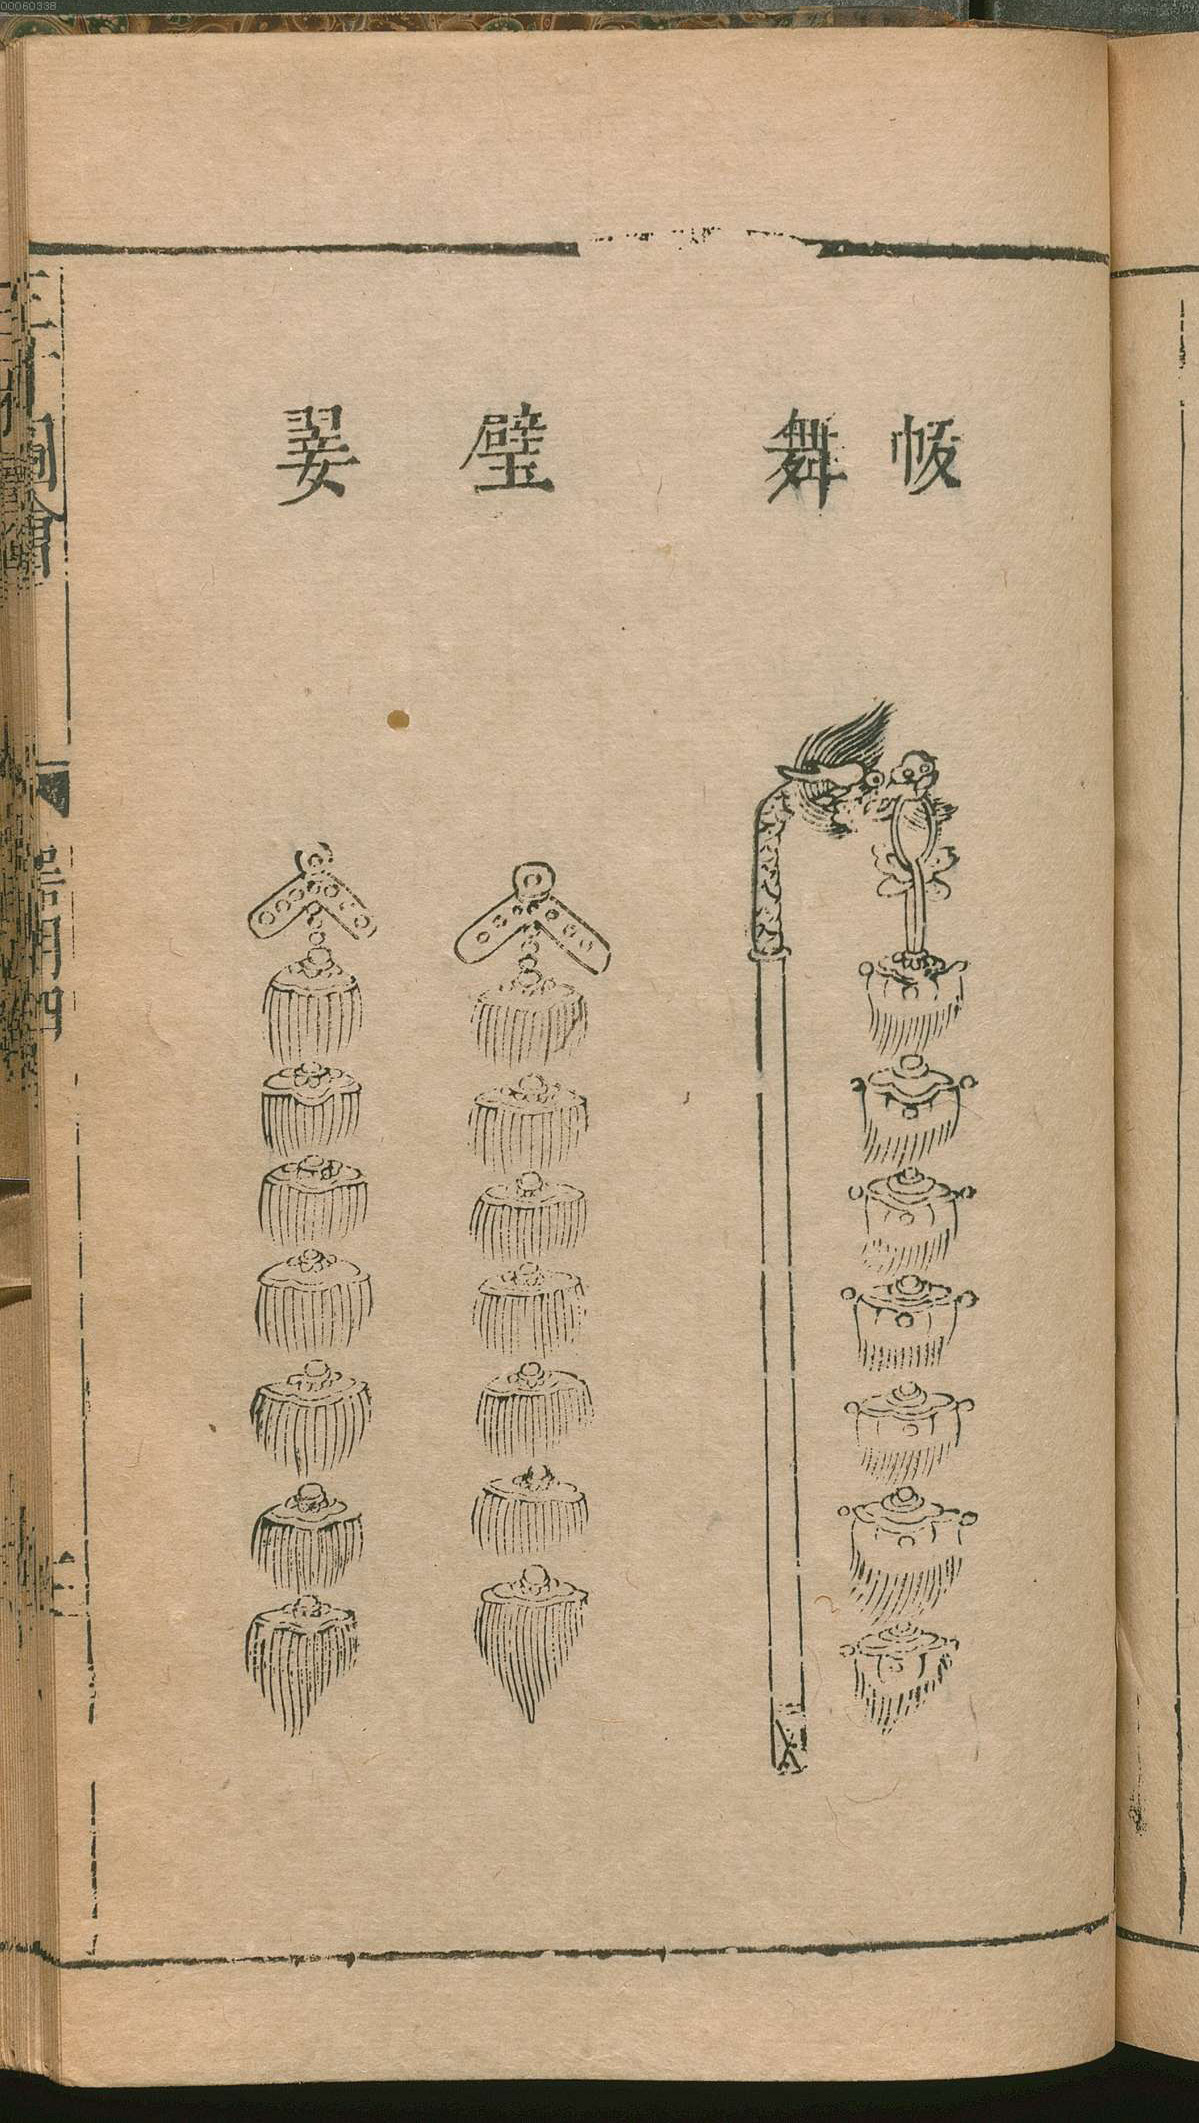 00060338
帗舞
璧翣
三才圖會
器用四